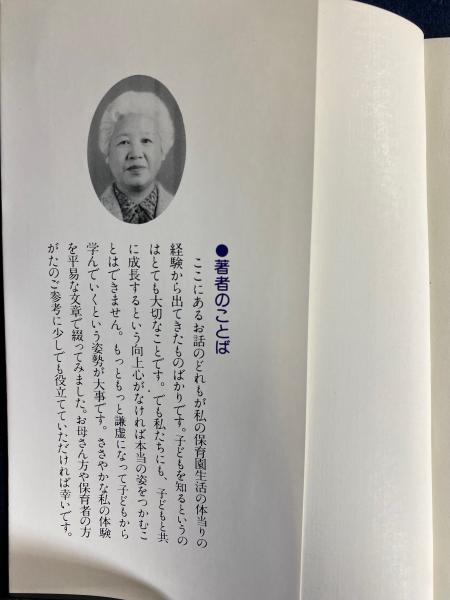 ●著者のことば
ここにあるお話のどれもが私の保育園生活の体当りの
経験から出てきたものばかりです。子どもを知るというの
はとても大切なことです。でも私たちにも、子どもと共
に成長するという向上心がなければ本当の姿をつかむこ
とはできません。もっともっと謙虚になって子どもから
学んでいくという姿勢が大事です。ささやかな私の体験
を平易な文章で綴ってみました。お母さん方や保育者の方
がたのご参考に少しでも役立てていただければ幸いです。